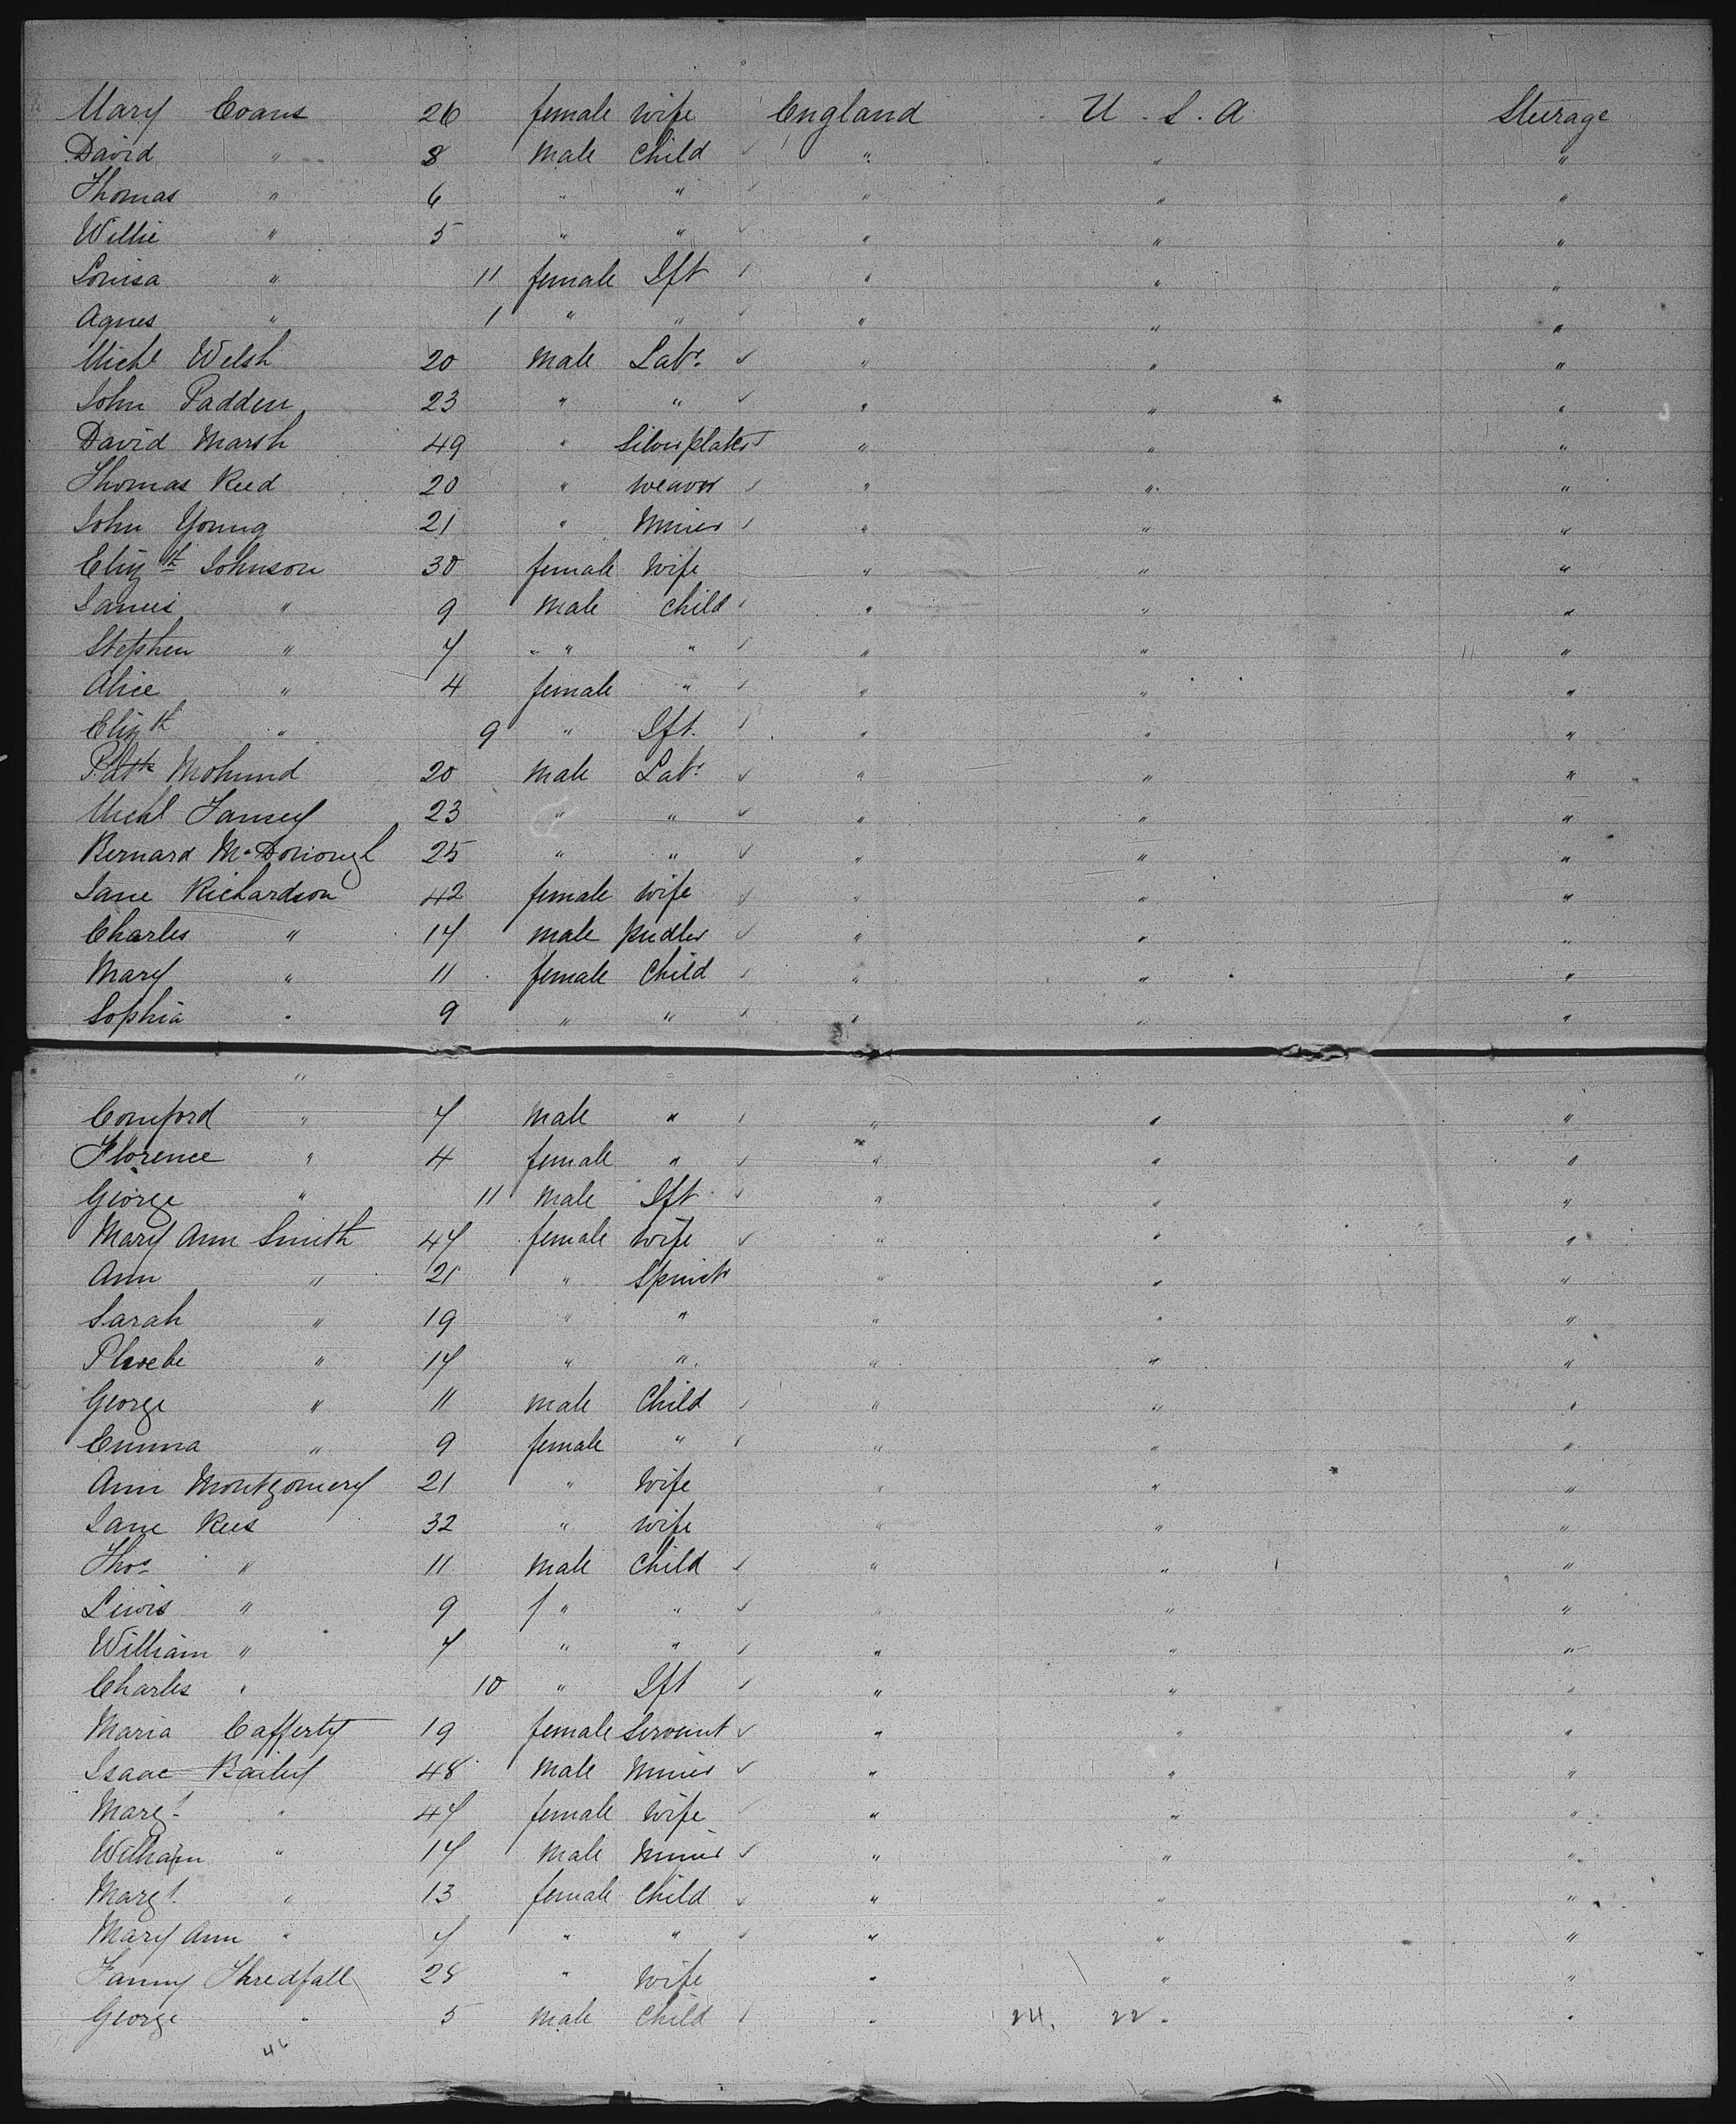 Mary Evans 26 female wife England U.S.A Steerage
David " 8 male Child " " "
Thomas " 6 " " " " "
Willie " 5 " " " " "
Louisa " 11 female Ift " " "
Agnes " 1 " " " " "
Michl Welsh 20 male Labr " " "
John Padden 23 " " " " "
David Marsh 49 " Silverplater " " "
Thomas Reed 20 " weaver " " "
John Young 21 " Miner " " "
Elizth Johnson 30 female wife " " "
James " 9 male child " " "
Stephen " 7 " " " " "
Alice " 4 female " " " "
Elizth " 9 " Ift. " " "
Patk 20 male Labr " " "
Michl 23 " " " " "
Bernard McDonough 25 " " " " "
Jane Richardson 42 female wife " " "
Charles " 17 male pudler " " "
Mary " 11 female Child " " "
Sophia " 9 " " " " "
"
Comford " 7 male " " " "
Florence " 4 female " " " "
George " 11 male Ift " " "
Mary Ann Smith 47 female wife " " "
Ann " 21 " Spinstr " " "
Sarah " 19 " " " " "
Phoebe " 17 " " " " "
George " 11 male Child " " "
Emma " 9 female " " " "
Ann Montgomery 21 " wife " " "
Jane Rees 32 " wife " " "
Thos " 11 male Child " " "
Lewis " 9 " " " " "
William " 7 " " " " "
Charles " 10 " Ift " " "
Maria Cafferty 19 female Servant " " "
Isaac Bailey 48 male Miner " " "
Margt " 47 female wife " " "
William " 17 male miner " " "
Margt " 13 female child " " "
Mary Ann " 7 " " " " "
Fanny Thredfall 28 " wife " " "
George " 5 male child " 24. 22. " "
46